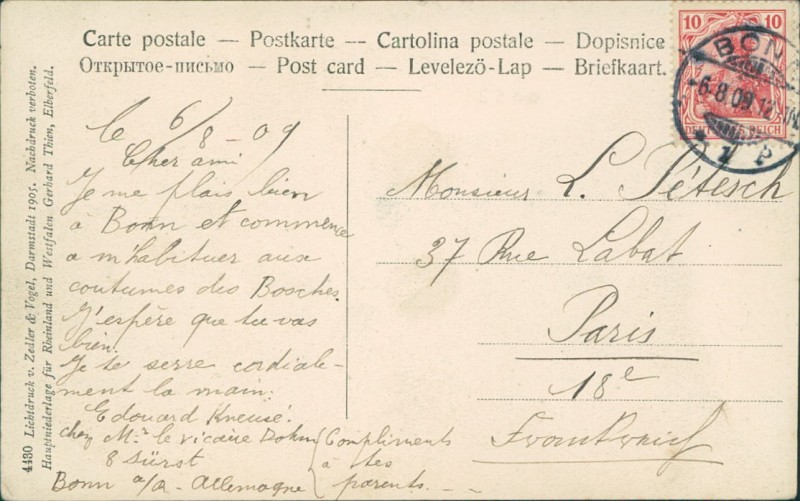 Carte postale — Postkarte — Cartolina postale — Dopisnice
Открытое-письмо — Post card — Levelező-Lap — Briefkaart.
10 10
BONN
-6.8.09.12
DEUTSCHES REICH
4430 Lichtdruck v. Zedler & Vogel, Darmstadt 1905. Nachdruck verboten.
Hauptniederlage für Rheinland und Westfalen Gerhard Thien, Elberfeld.
le 6/8-09
Cher ami
Je me plais bien
à Bonn et commence
a m'habituer aux
coutumes des Bosches.
J'espère que tu vas
bien.
Je te serre cordiale-
ment la main.
Edouard
chez Mr. le vicaire Dohm
8 Sürst
Bonn a/R - Allemagne
Compliments
à tes
parents. —
Monsieur L. Pétesch
37 Rue Labat
Paris
18e
Frankreich